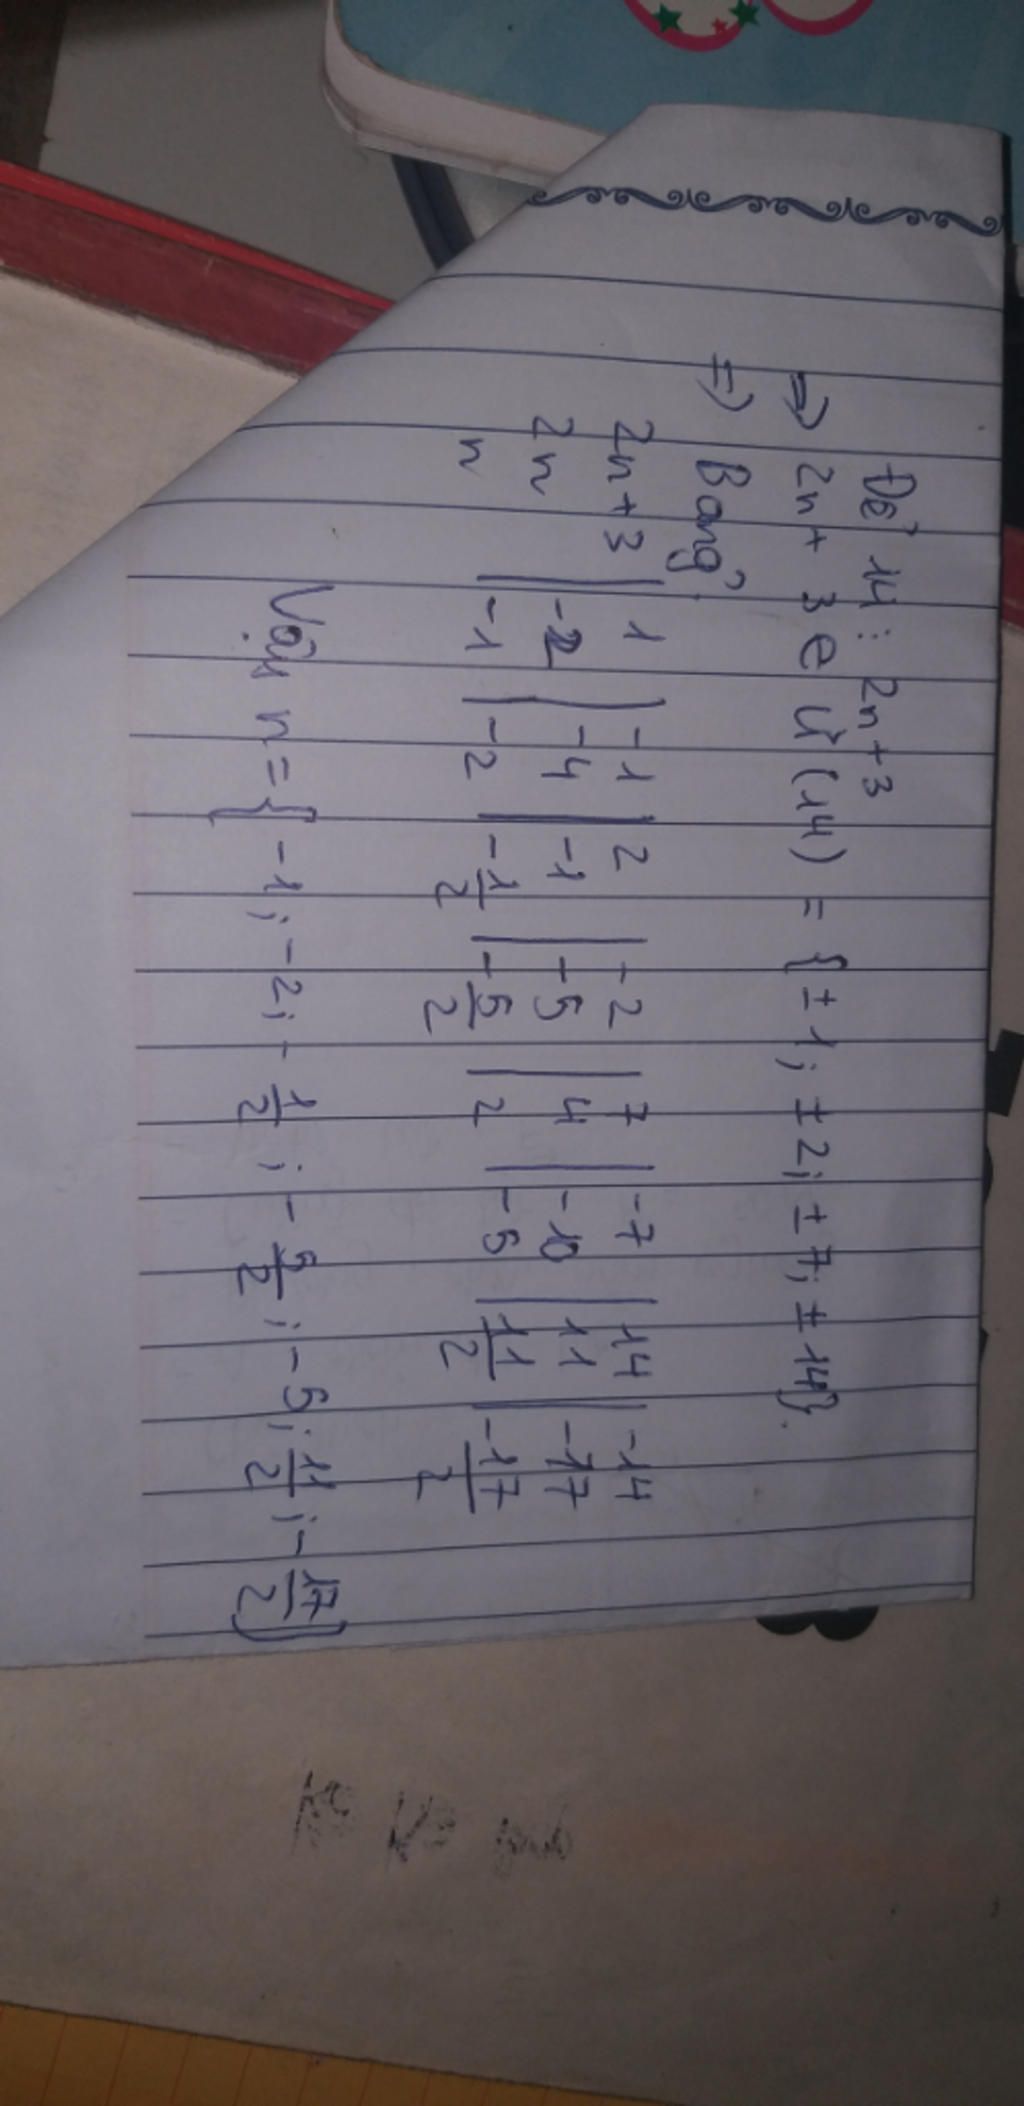 Để 14 ⋮ 2n+3
⇒ 2n + 3 e Ư(14) = {±1; ±2; ±7; ±14}.
⇒ Bảng
2n+3 | 1 | -1 | 2 | -2 | 7 | -7 | 14 | -14
2n | -2 | -4 | -1 | -5 | 4 | -10 | 11 | -17
n | -1 | -2 | -1/2 | -5/2 | 2 | -5 | 11/2 | -17/2
Vậy n = { -1; -2; -1/2; -5/2; -5; 11/2; -17/2 }